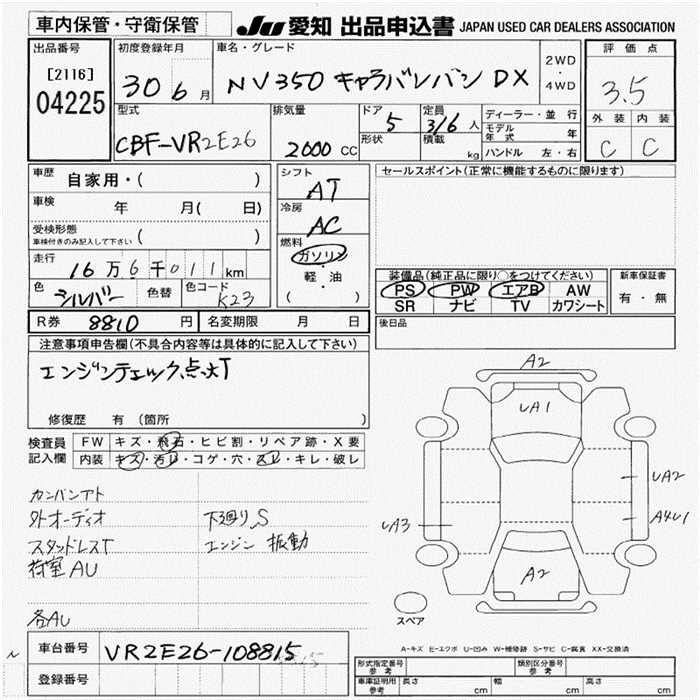 車内保管・守衛保管
JU 愛知 出品申込書 JAPAN USED CAR DEALERS ASSOCIATION
出品番号
[2116]
04225
初度登録年月
30 6 月
車名・グレード
NV350 キャラバンバン DX
2WD
・
4WD
評価点
3.5
外装 内装
C C
型式
CBF-VR2E26
排気量
2000 CC
ドア
5
形状
定員
3/6 人
積載
kg
ディーラー・並行
モデル年式 年
ハンドル 左・右
車歴
自家用・( )
車検
年 月( 日)
受検形態
車検付きのみ記入して下さい ( )
走行
16万6千011km
色
シルバー
色替
色コード
K23
シフト
AT
冷房
AC
燃料
ガソリン
・
軽・油
( )
セールスポイント(正常に機能するものに限ります)
装備品(純正品に限り○をつけてください)
PS PW エアB AW
SR ナビ TV カワシート
新車保証書
有・無
R券 8810 円
名変期限 月 日
後日品
注意事項申告欄(不具合内容等は具体的に記入して下さい)
エンジンチェック点灯
修復歴 有 (箇所 )
検査員記入欄
FW キズ・飛石・ヒビ割・リペア跡・X要
内装 キズ・汚レ・コゲ・穴・スレ・キレ・破レ
カンバンアト
外オーディオ
スタッドレスT
荷室AU
各AU
下廻りS
エンジン 振動
A2
UA1
UA2
A4U1
UA3
A2
スペア
A-キズ E-エクボ U-凹み W-補修跡 S-サビ C-腐食 XX-交換済
車台番号
VR2E26-108815
登録番号
形式指定番号
参考
類別区分番号
参考
車庫証明用
参考
長さ cm
幅 cm
高さ cm